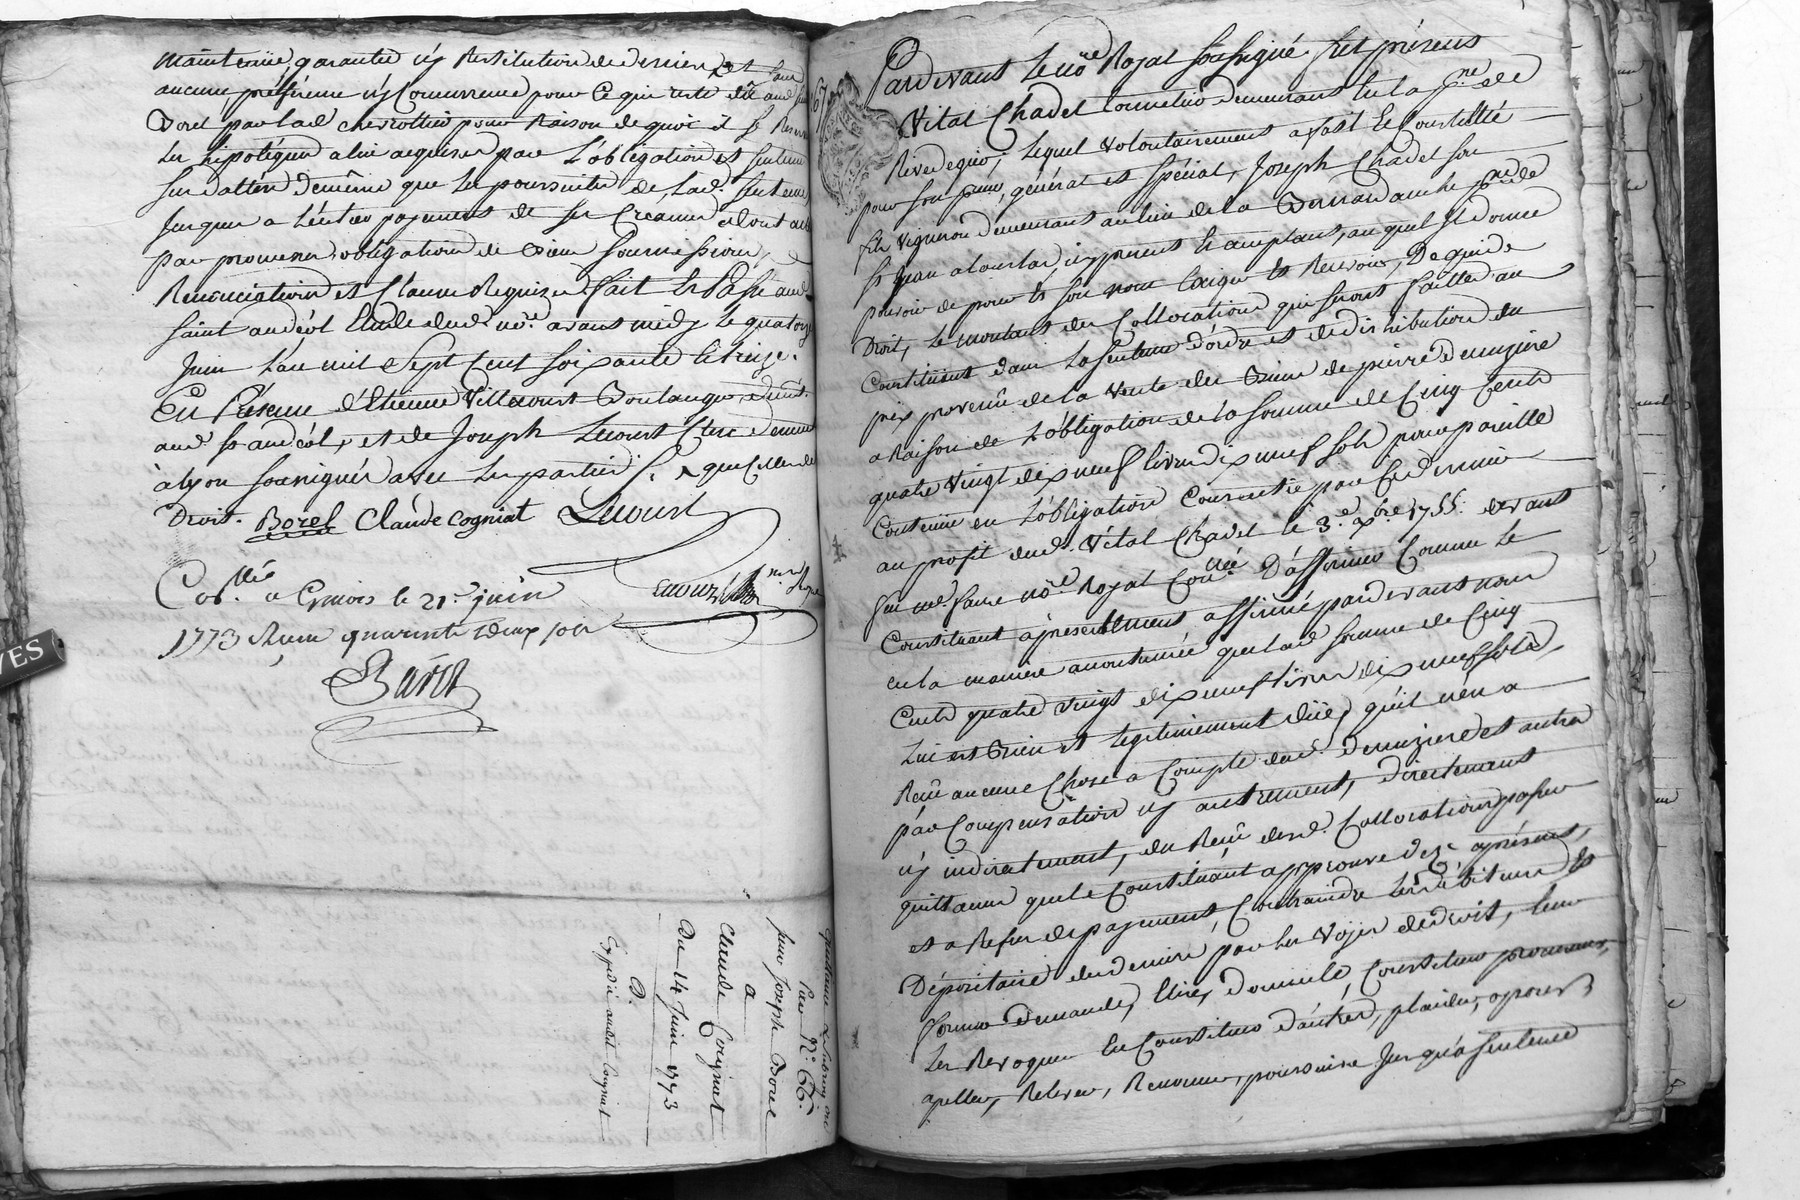 maintenüe, garantie ny Restitution de deniers et sans
aucune préférence ny Concurrence pour ce qui reste dû aud. sieur
Borel par lad. chevrottier pour Raison de quoi il se Reserve
les hipotéques a lui acquises par L'obligation et sentence
sus dattées de même que les poursuites de Lad. sentence
Jusques a L'entier payement de ses Creances dont acte
par promesses obligation de biens soumissions
Renonciations et Clauses Requises. fait et Passé aud.
saint andéol Etude dud. no.re avant midy le quatorze
Juin L'an mil Sept Cent soixante et treize.
En Présence d'Etienne Villecourt Boulanger demt.
aud. St andéol, et de Joseph Lecourt Clerc demeurt
à lyon soussignés avec les parties. que Celles de
Droit. Borel Claude cogniat Lecourt
Coll.ée a Grivois le 21.e juin
1773 Reçu quarante deux sols
Baret
quittance et subrogation
Pacet N.o 66.
sieur Joseph Borel
a
Claude Cogniat
Du 14 Juin 1773
D.
Expedié audit Cogniat
67
Pardevant Le no.re Royal soussigné fut présent
Vital Chadel tonnelier demeurant en la p.sse de
Rivedegier, Lequel volontairement a fait et Constitué
pour son p.reur, général et spécial, Joseph Chadel son
fils vigneron demeurant au lieu de la Bernardanche p.sse de
St Jean a touslas icy present et acceptant, auquel Il donne
pouvoir de pour et son nom Exiger et Recevoir, De qui de
Droit, Le montant des Collocations qui seront faittes au
Constituant dans La sentence d'ordre et de distribution du
prix provenû de la Vente des Biens de pierre demeziere
a Raison de L'obligation de la somme de Cinq Cents
quatre vingt dix neuf livres dix neuf sols pour pareille
Contenüe en L'obligation Consentie par Ce dernier
au profit dud. Vital Chadel le 3.e xbre 1755. devant
feu me. faure no.re Royal Con.llée D'affirmer Comme Le
Constituant a présentement affirmé pardevant nous
en la maniere accoutumée que lad. somme de Cinq
Cents quatre vingt dix neuf livres dix neuf sols,
Lui est Bien et Legitimement dûe, qu'il n'en a
Reçû aucune Chose a Compte dud. demeziere et autres
par Compensation ny autrement, directement
ny indirectement, du Reçû desd. Collocations passer
quittances que le Constituant approuve dez apresent,
et a Refus de payement, Contraindre Les débiteurs et
Dépositaires des deniers par les Voyes de droit, leur
former demande, Elire, domicile, Constituer procureurs,
Les Revoquer En Constituer d'autres, plaider, oposer
apeller, Relever, Renoncer, poursuivre Jusqu'a sentence